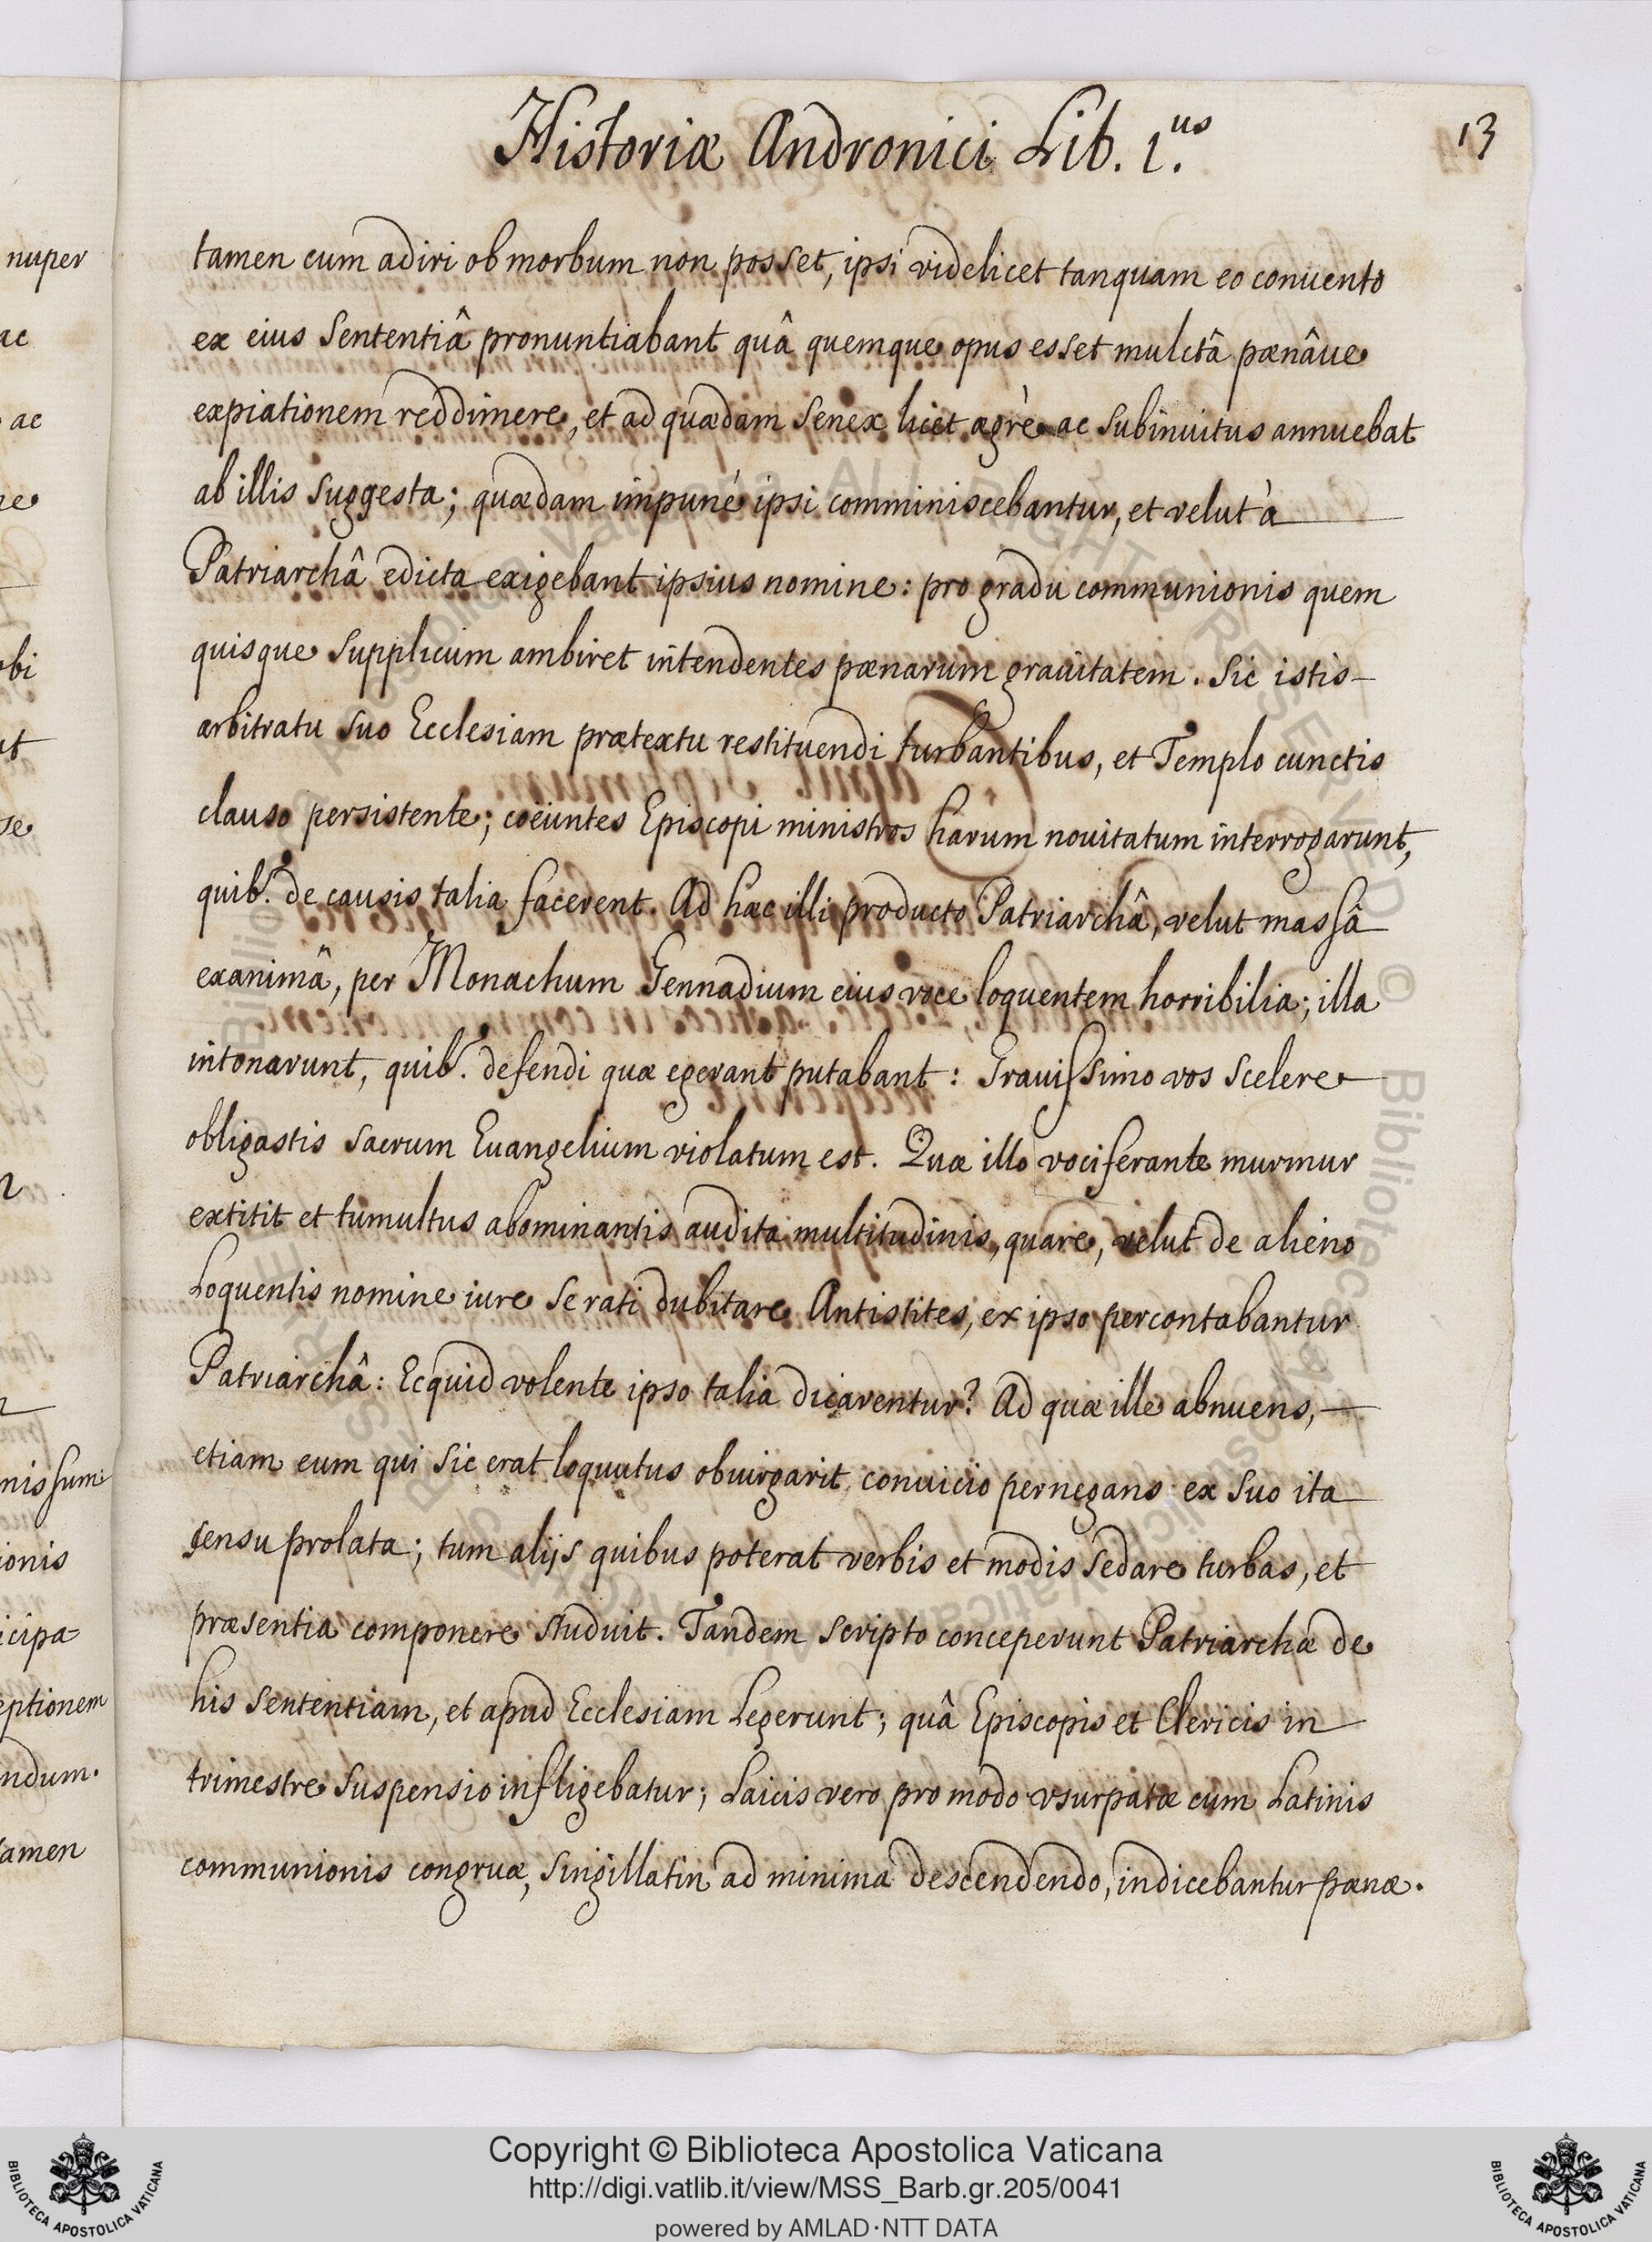 Historiæ Andronici Lib. 1.us
13
tamen cum adiri ob morbum non posset, ipsi videlicet tanquam eo conuento
ex eius sententiâ pronuntiabant quâ quemque opus esset mulctâ pœnâue
expiationem reddimere, et ad quædam senex licet ægrè ac subinuitus annuebat
ab illis suggesta; quædam impuné ipsi comminiscebantur, et velut à
Patriarchâ edicta exigebant ipsius nomine: pro gradu communionis quem
quisque supplicum ambiret intendentes pœnarum grauitatem. Sic istis
arbitratu suo Ecclesiam prætextu restituendi turbantibus, et Templo cunctis
clauso persistente; coëuntes Episcopi ministros harum nouitatum interrogarunt,
quib. de causis talia facerent. Ad hæc illi producto Patriarchâ, velut massâ
exanimâ, per Monachum Gennadium eius voce loquentem horribilia; illa
intonarunt, quib. defendi quæ egerant putabant: Grauissimo vos scelere
obligastis sacrum Euangelium violatum est. Quæ illo vociferante murmur
extitit et tumultus abominantis audita multitudinis, quare, velut de alieno
Loquentis nomine iure se rati dubitare Antistites, ex ipso percontabantur
Patriarchâ: Ecquid volente ipso talia dicarentur? Ad quæ ille abnuens,
etiam eum qui sic erat loquutus obiurgarit conuicio pernegans ex suo ita
sensu prolata; tum alijs quibus poterat verbis et modis sedare turbas, et
præsentia componere studuit. Tandem scripto conceperunt Patriarchæ de
his sententiam, et apud Ecclesiam Legerunt; quâ Episcopis et Clericis in
trimestre suspensio infligebatur; Laicis vero pro modo vsurpatæ cum Latinis
communionis congruæ, singillatin ad minima descendendo, indicebantur pœnæ.
nuper
ac
ac
nissum
ionis
icipa-
eptionem
ndum.
tamen
Copyright © Biblioteca Apostolica Vaticana
http://digi.vatlib.it/view/MSS_Barb.gr.205/0041
powered by AMLAD·NTT DATA
BIBLIOTECA APOSTOLICA VATICANA
BIBLIOTECA APOSTOLICA VATICANA